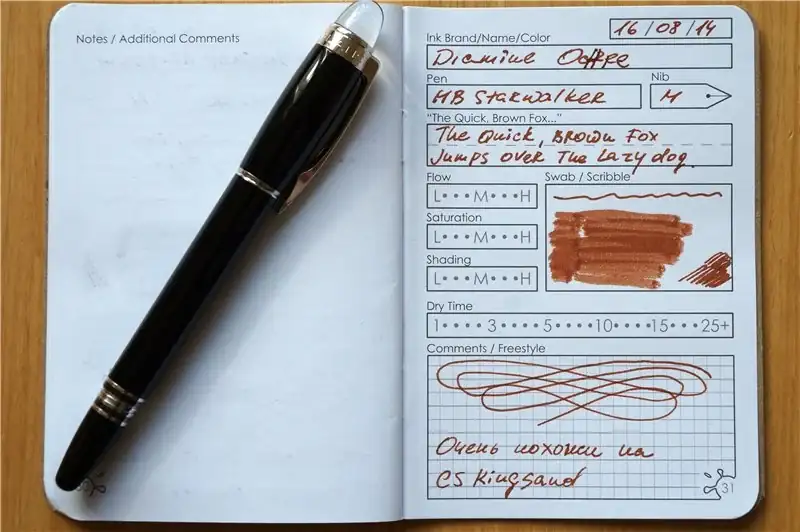 Notes / Additional Comments
16/08/14
Ink Brand/Name/Color
Diamine Ochre
Pen
Nib
MB Starwalker
M
"The Quick, Brown Fox..."
The Quick, Brown Fox
Jumps over The Lazy dog.
Flow
Swab / Scribble
L•••M•••H
Saturation
L•••M•••H
Shading
L•••M•••H
Dry Time
1••••3••••5••••10••••15•••25+
Comments / Freestyle
Очень похожи на
CS Kingsand
31